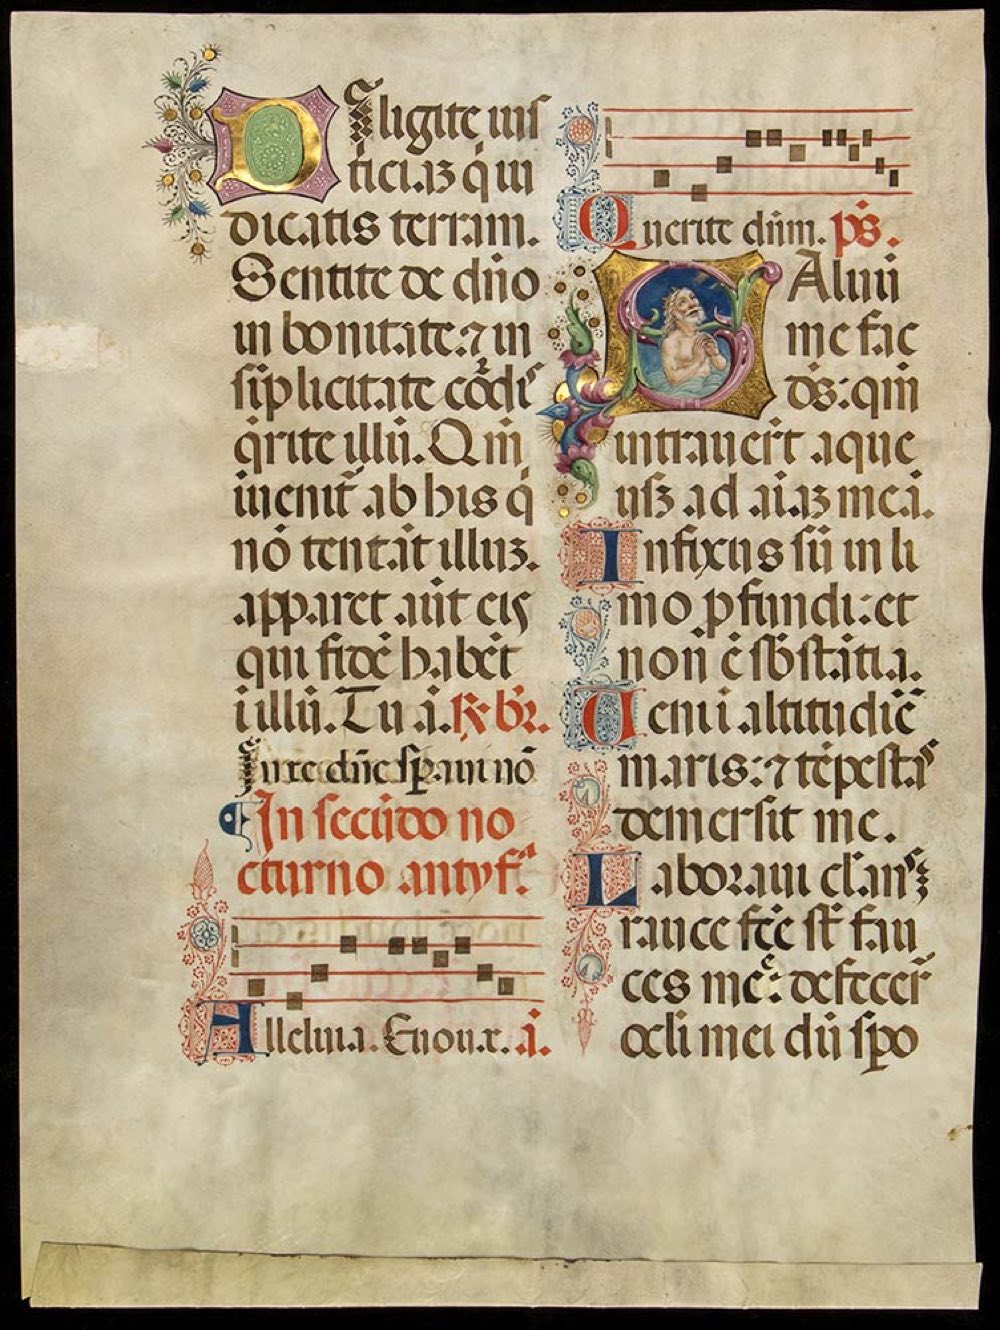 Diligite ius
ticia3 q̇ iu
dicatis terram.
Sentite de dño
in bonitate: ⁊ in
sĩplicitate cõrdis
q̇rite illũ. Qm̃
iuenit᷑ ab his q̇
nõ tentãt illu3.
apparet aũt eis
qui fidẽ habẽt
i illũ. Tu a. ℟. br̃.
In te dñe speraui nõ
In secũdo no
cturno antyf.ᵃ
Alleluia. Euouae. a.
Querite dñm. p̃s.
SAluũ
me fac
ds̃: qm̃
intrauerũt aque
usq3 ad aĩa3 meã.
Infixus sũ in li
mo p̱fundi: et
non ẽ sb̃stãtia.
Ueni i altitudiẽ
maris: ⁊ tẽpestas
demersit me.
Laboraui clãns
rauce fc̃e st̃ fau
ces meᵉ: defecer̃
oc̃li mei dũ spo